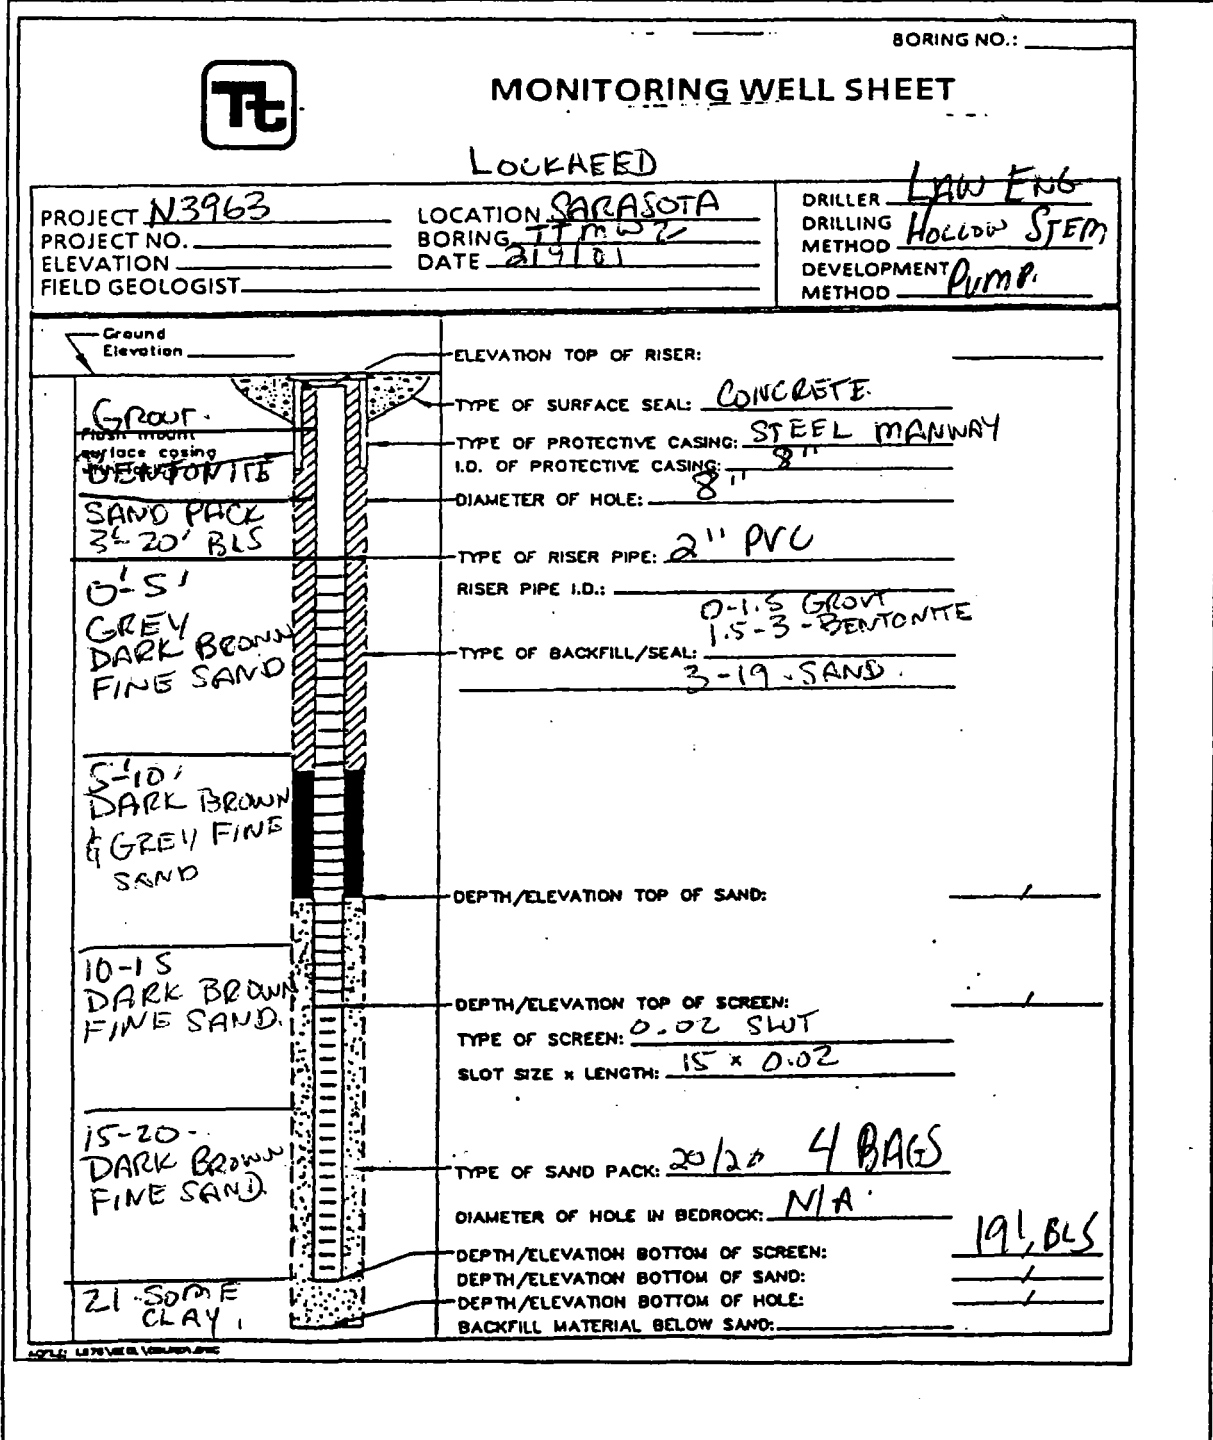 BORING NO.:
Tt
MONITORING WELL SHEET
LOCKHEED
PROJECT N3963
PROJECT NO.
ELEVATION
FIELD GEOLOGIST
LOCATION SARASOTA
BORING TTMW2
DATE 2/9/01
DRILLER LAW ENG
DRILLING
METHOD HOLLOW STEM
DEVELOPMENT
METHOD PUMP.
Ground
Elevation
GROUT.
Flush mount
surface casing
BENTONITE
SAND PACK
3'-20' BLS
0'-5'
GREY
DARK BROWN
FINE SAND
5'-10'
DARK BROWN
& GREY FINE
SAND
10-15
DARK BROWN
FINE SAND.
15-20-
DARK BROWN
FINE SAND.
21 SOME
CLAY.
ELEVATION TOP OF RISER:
TYPE OF SURFACE SEAL: CONCRETE.
TYPE OF PROTECTIVE CASING: STEEL MANWAY
I.D. OF PROTECTIVE CASING: 8"
DIAMETER OF HOLE: 8"
TYPE OF RISER PIPE: 2" PVC
RISER PIPE I.D.:
0-1.5 GROUT
1.5-3-BENTONITE
TYPE OF BACKFILL/SEAL:
3-19-SAND.
DEPTH/ELEVATION TOP OF SAND: /
DEPTH/ELEVATION TOP OF SCREEN: /
TYPE OF SCREEN: 0.02 SLOT
SLOT SIZE x LENGTH: 15 x 0.02
TYPE OF SAND PACK: 20/20 4 BAGS
DIAMETER OF HOLE IN BEDROCK: N/A
DEPTH/ELEVATION BOTTOM OF SCREEN: 19', BLS
DEPTH/ELEVATION BOTTOM OF SAND: /
DEPTH/ELEVATION BOTTOM OF HOLE: /
BACKFILL MATERIAL BELOW SAND: